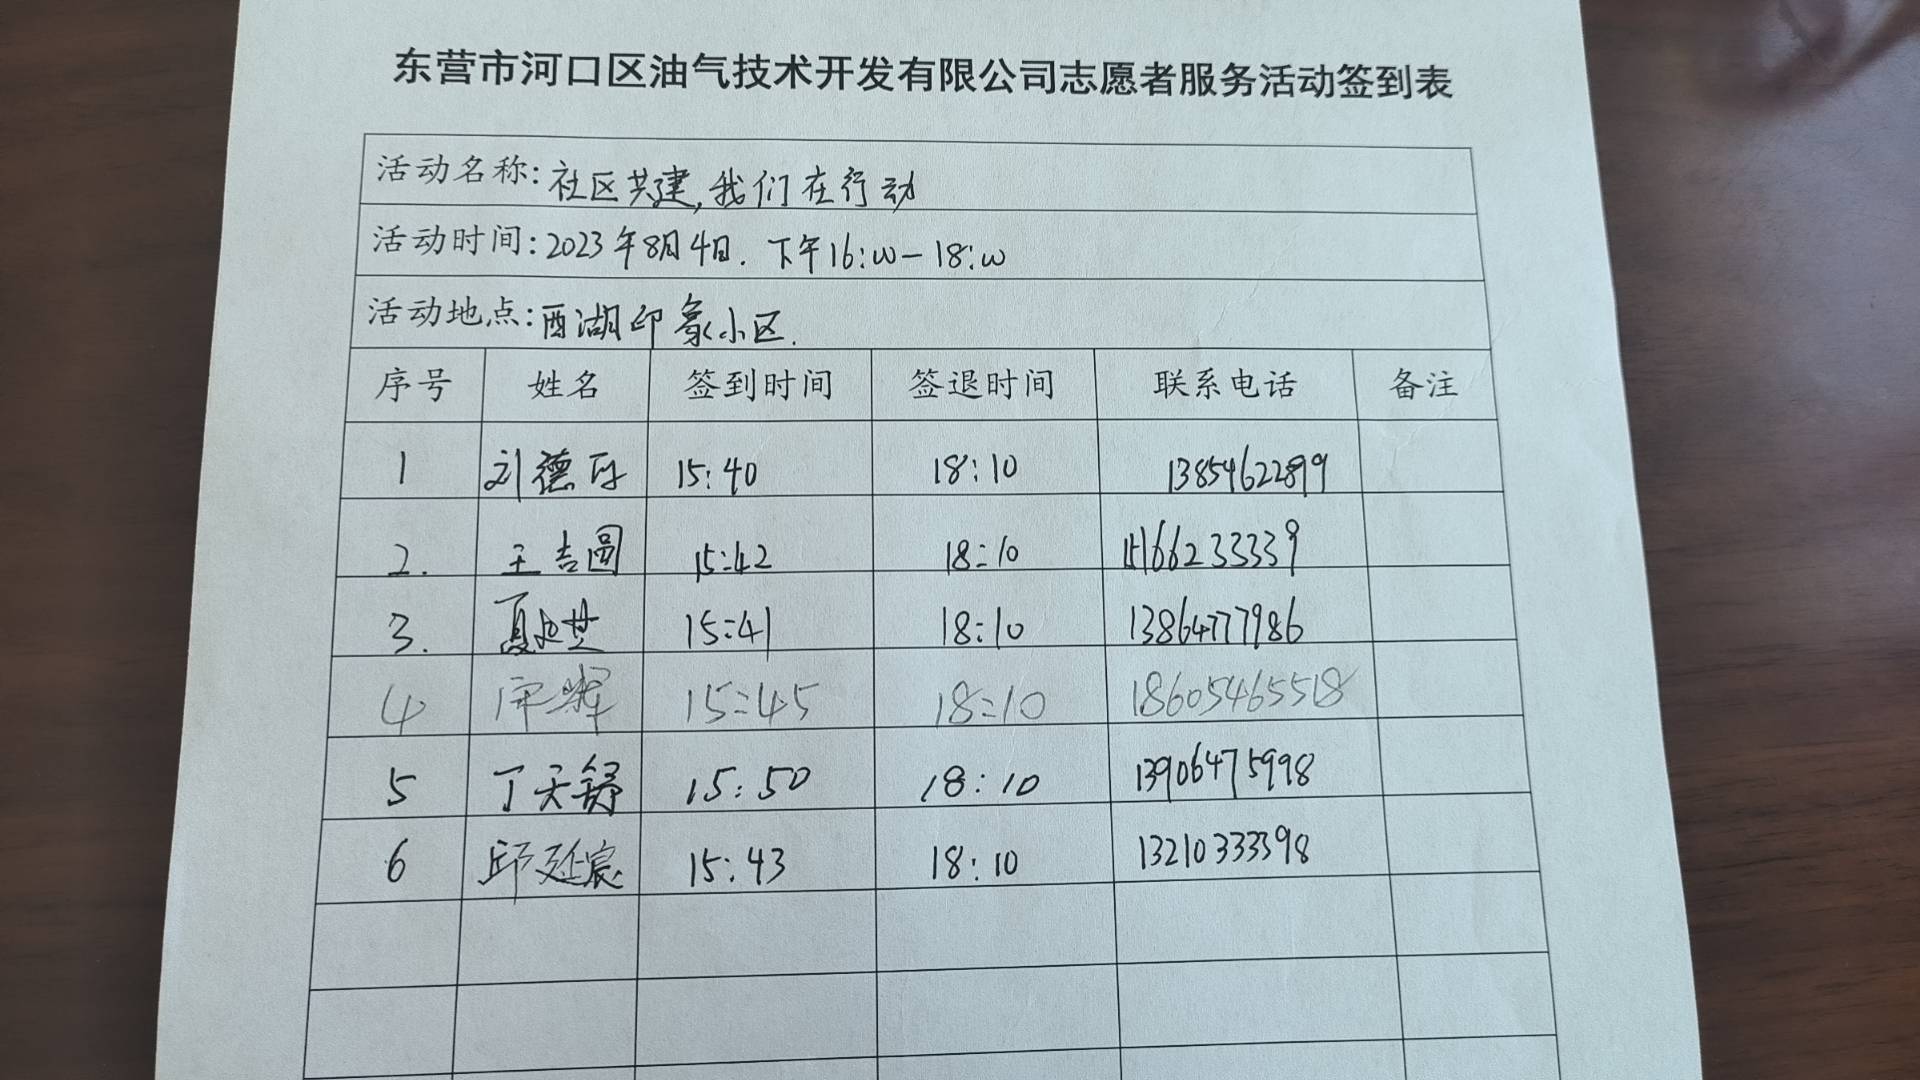 东营市河口区油气技术开发有限公司志愿者服务活动签到表
活动名称:社区共建,我们在行动
活动时间:2023年8月4日. 下午16:00-18:00
活动地点:西湖印象小区.
序号 姓名 签到时间 签退时间 联系电话 备注
1 刘德 15:40 18:10 13854622899
2. 王吉圆 15:42 18:10 15166233339
3. 夏 15:41 18:10 13864777986
4 15:45 18:10 18605465518
5 丁天舒 15:50 18:10 13906475998
6 邱延宸 15:43 18:10 13210333398